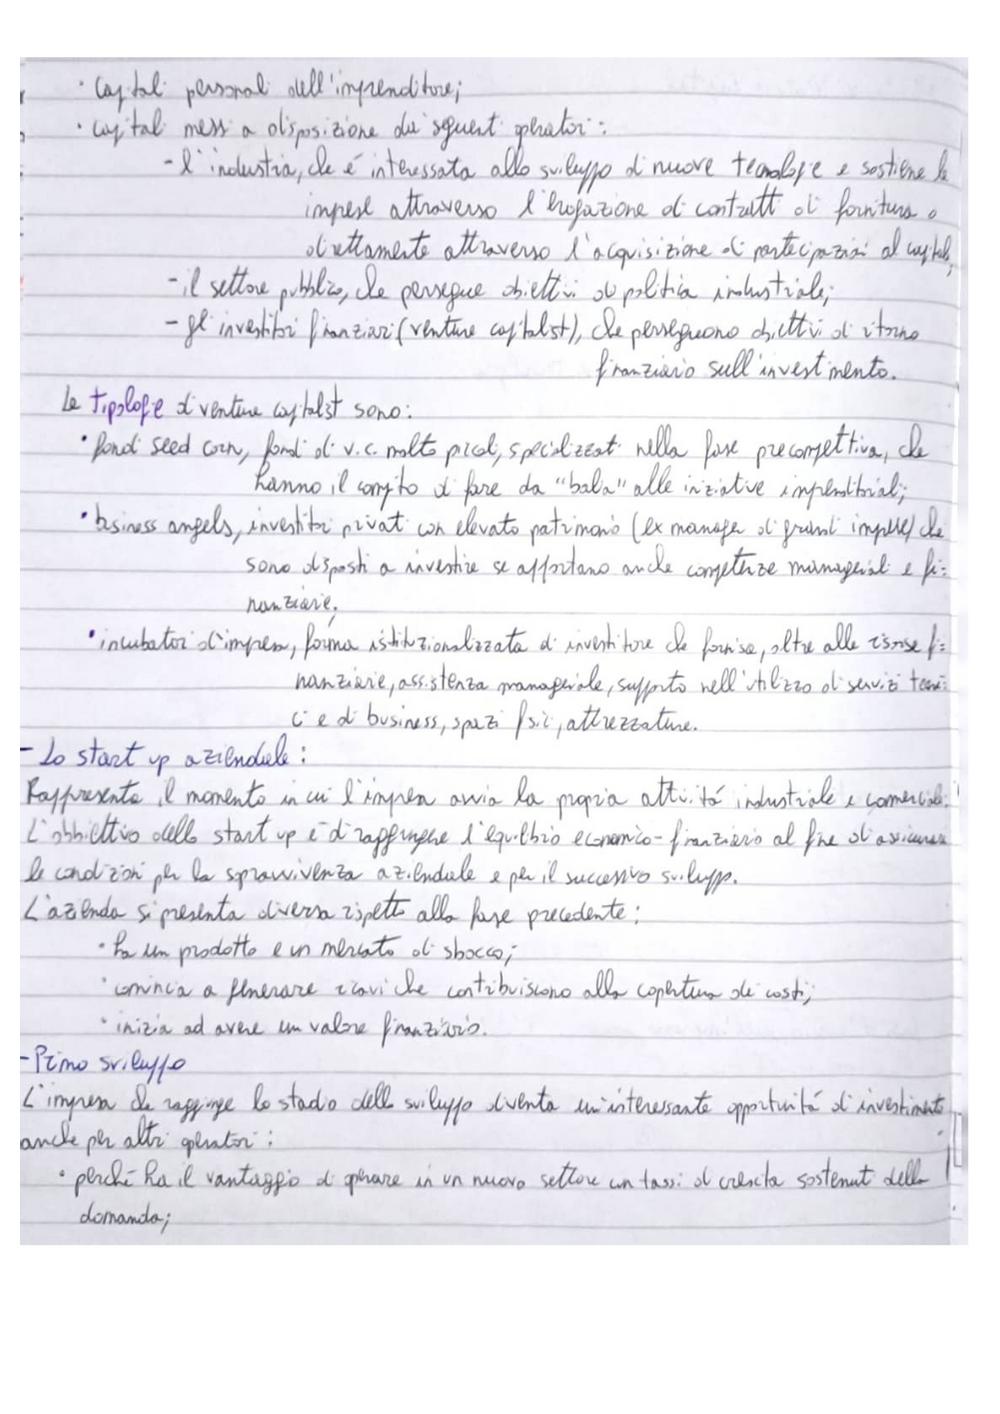 · Capitali personali dell'imprenditore;
· capitali messi a disposizione dai seguenti operatori:
- l'industria, che è interessata allo sviluppo di nuove tecnologie e sostiene le
imprese attraverso l'erogazione di contratti di fornitura o
direttamente attraverso l'acquisizione di partecipazioni al capitale;
- il settore pubblico, che persegue obiettivi di politica industriale;
- gli investitori finanziari (venture capitalist), che perseguono obiettivi di ritorno
finanziario sull'investimento.
Le tipologie di venture capitalist sono:
· fondi seed corn, fondi di v.c. molto piccoli, specializzati nella fase precompetitiva, che
hanno il compito di fare da "balia" alle iniziative imprenditoriali;
· business angels, investitori privati con elevato patrimonio (ex manager di grandi imprese) che
sono disposti a investire se apportano anche competenze manageriali e fi=
nanziarie.
· incubatori d'impresa, forma istituzionalizzata di investitore che fornisce, oltre alle risorse fi=
nanziarie, assistenza manageriale, supporto nell'utilizzo di servizi tecni=
ci e di business, spazi fisici, attrezzature.
- Lo start up aziendale:
Rappresenta il momento in cui l'impresa avvia la propria attività industriale e commerciale.
L'obbiettivo dello start up è di raggiungere l'equilibrio economico-finanziario al fine di assicurare
le condizioni per la sopravvivenza aziendale e per il successivo sviluppo.
L'azienda si presenta diversa rispetto alla fase precedente:
· ha un prodotto e un mercato di sbocco;
· comincia a generare ricavi che contribuiscono alla copertura dei costi;
· inizia ad avere un valore finanziario.
- Primo sviluppo
L'impresa che raggiunge lo stadio dello sviluppo diventa un'interessante opportunità di investimento
anche per altri operatori:
· perché ha il vantaggio di operare in un nuovo settore con tassi di crescita sostenuti della
domanda;